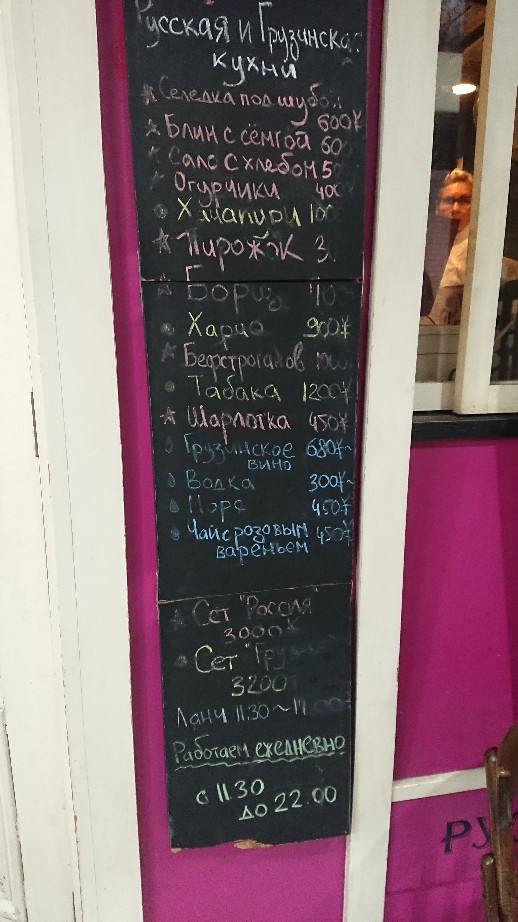 Русская и Грузинская
кухни
Селедка под шубой
600¥
Блин с сёмгой 60
Сало с хлебом 5
Огурчики 400
Хачапури 100
Пирожок 3
Борщ
Харчо 900¥
Бефстроганов
Табака 1200¥
Шарлотка 450¥
Грузинское 680¥~
вино
Водка 300¥~
Морс 450¥
Чай с розовым 450¥
вареньем
Сет "Россия"
3000¥
Сет "Гру
3200
Ланч 11.30~
Работаем ежедневно
с 11.30
до 22.00
РУ